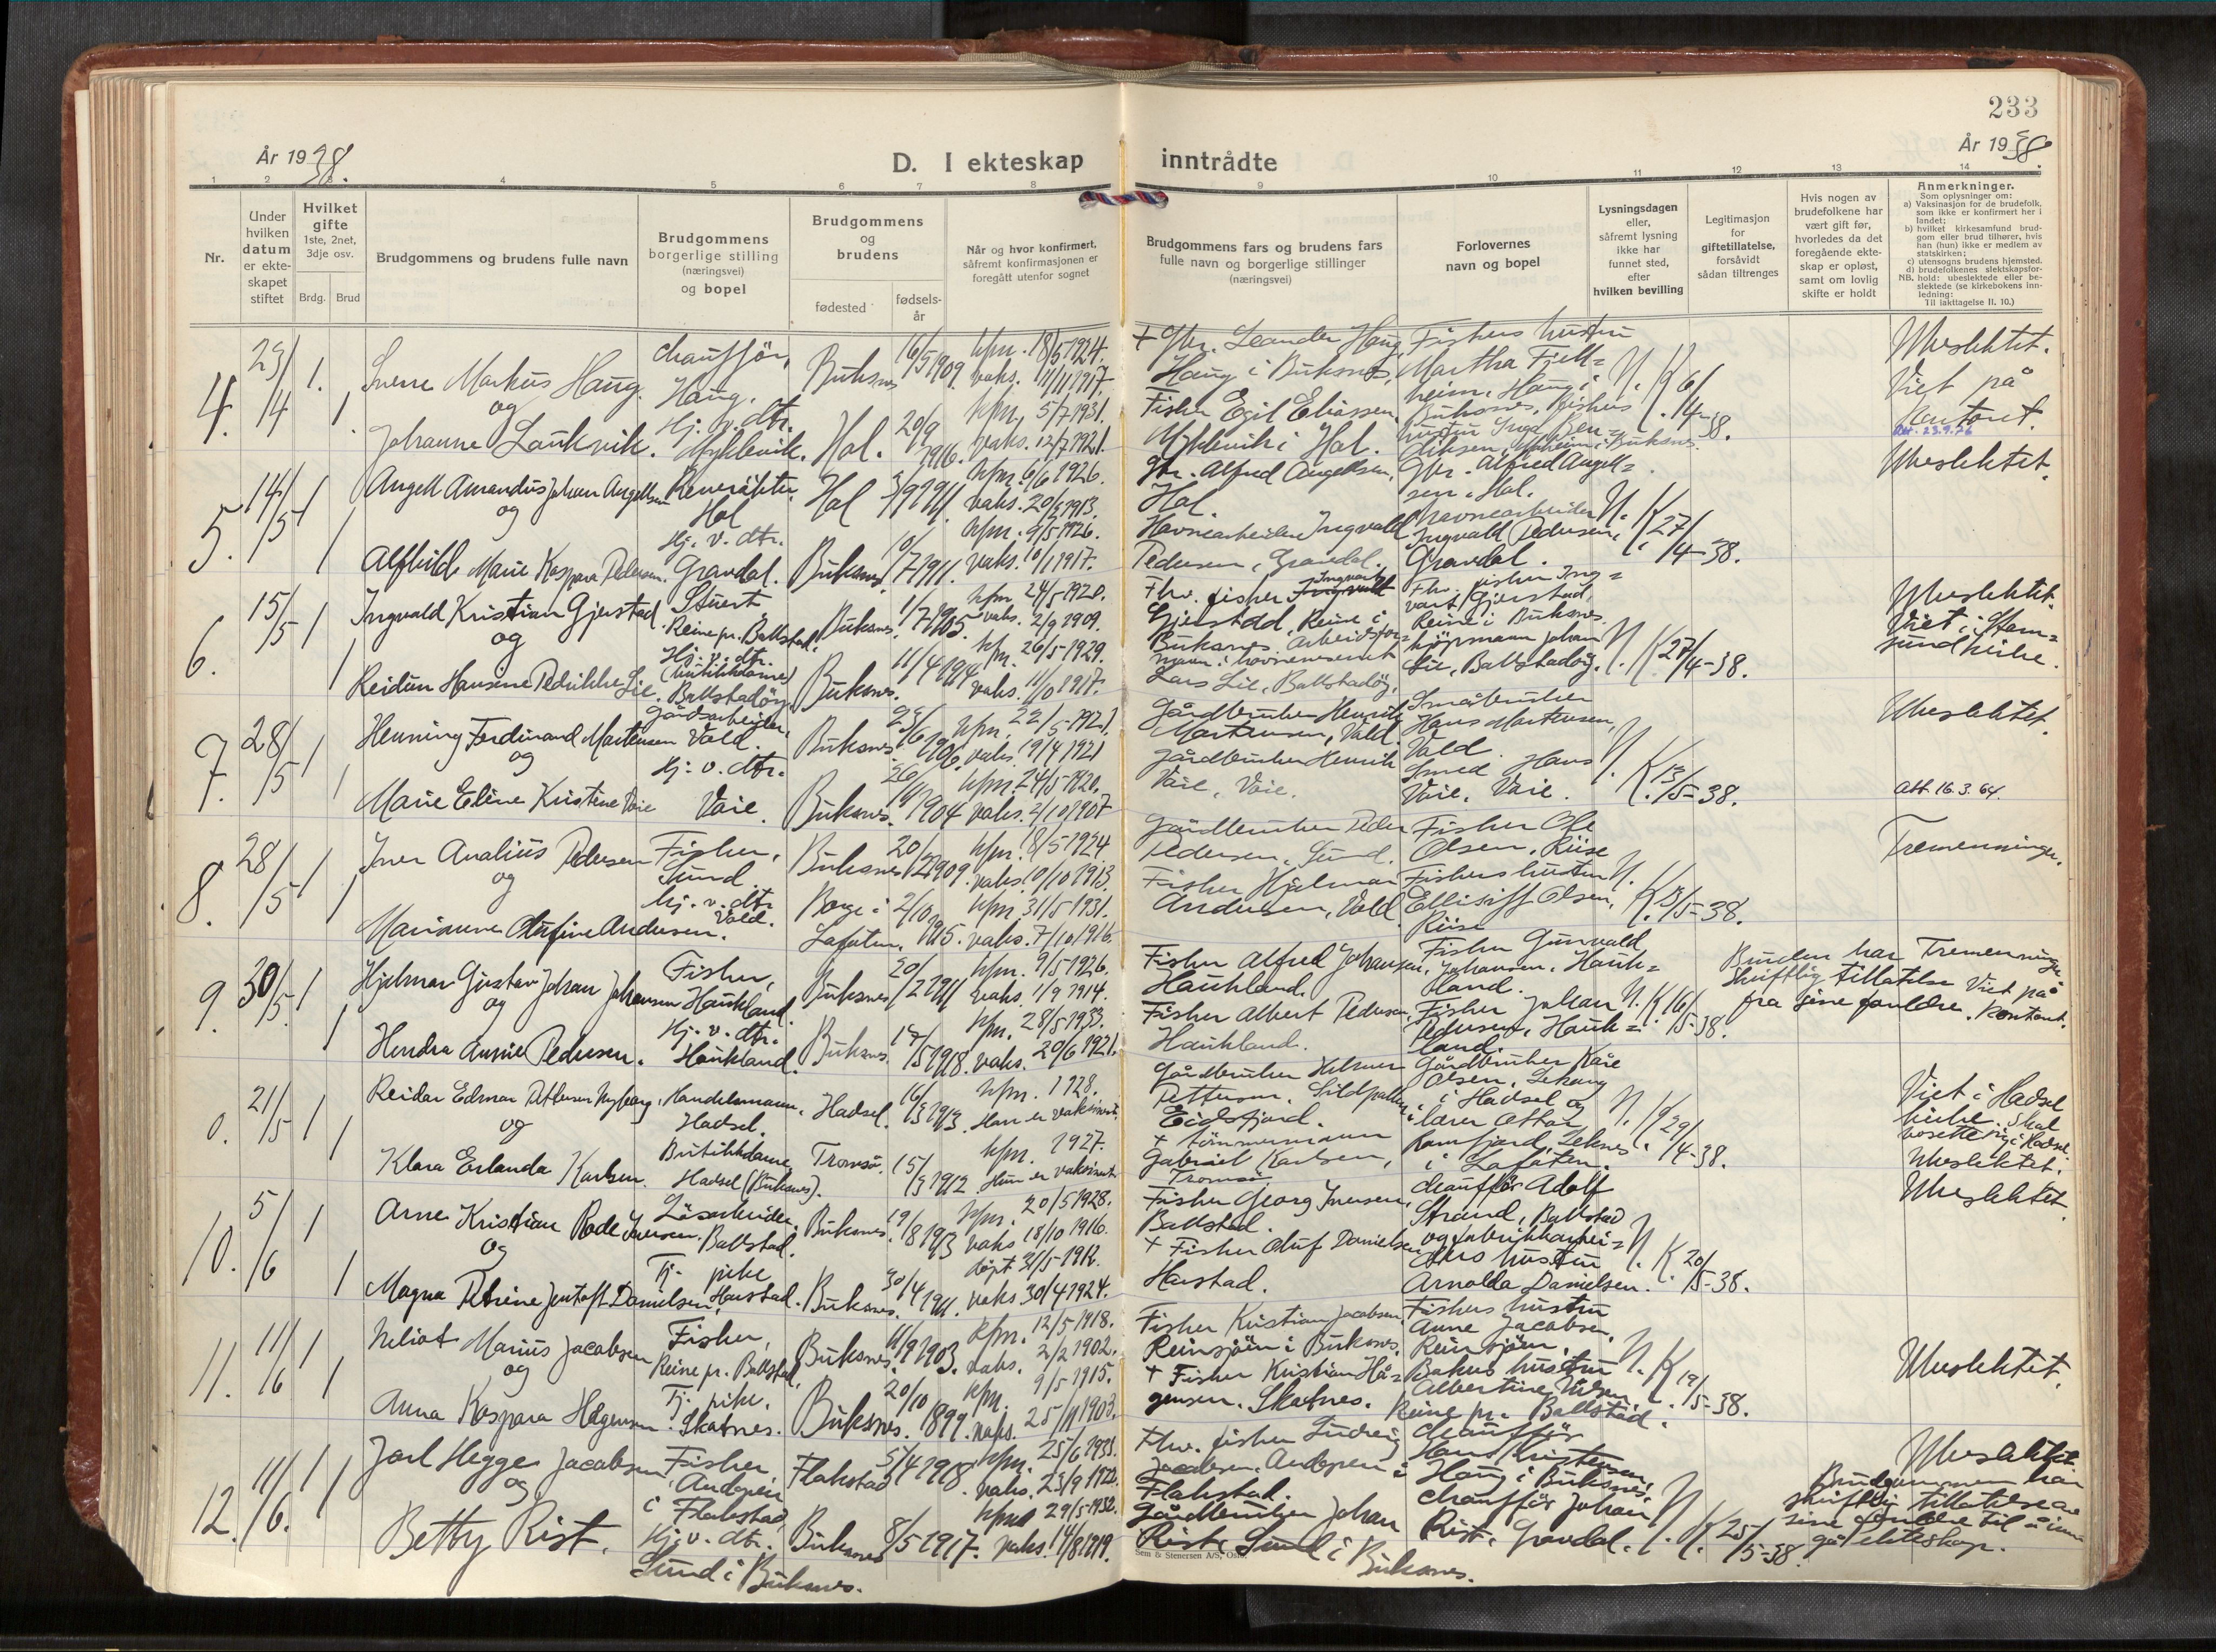 233
År 1938.
År 1938.
D. I ekteskap inntrådte
1 2 3 4 5 6 7 8 9 10 11 12 13 14
Nr.
Under hvilken datum er ekteskapet stiftet
Hvilket gifte
1ste, 2net, 3dje osv.
Brdg. Brud
Brudgommens og brudens fulle navn
Brudgommens borgerlige stilling (næringsvei) og bopel
Brudgommens og brudens
fødested
fødsels-år
Når og hvor konfirmert, såfremt konfirmasjonen er foregått utenfor sognet
Brudgommens fars og brudens fars fulle navn og borgerlige stillinger (næringsvei)
Forlovernes navn og bopel
Lysningsdagen eller, såfremt lysning ikke har funnet sted, efter hvilken bevilling
Legitimasjon for giftetillatelse, forsåvidt sådan tiltrenges
Hvis nogen av brudefolkene har vært gift før, hvorledes da det foregående ekteskap er opløst, samt om lovlig skifte er holdt
Anmerkninger.
Som oplysninger om:
a) Vaksinasjon for de brudefolk, som ikke er konfirmert her i landet;
b) hvilket kirkesamfund brudgom eller brud tilhører, hvis han (hun) ikke er medlem av statskirken;
c) utensogns brudens hjemsted.
d) brudefolkenes slektskapsforhold: ubeslektede eller beslektede (se kirkebokens innledning:
NB.
Til iakttagelse II. 10.)
4. 23/4 1. 1.
Sverre Markus Haug.
og
Johanne Laukvik.
chauffør, Haug.
Hj. v. dtr. Myklevik.
Buksnes 16/5 1909. kfn. 18/5 1924. vaks. 11/11 1917.
Hol. 20/9 1916. kfn. 5/7 1931. vaks. 12/7 1921.
+ Gbr. Leander Haug, Haug i Buksnes.
Fisker Egil Eliassen Myklevik i Hol.
Fiskers hustru Martha Fjellheim, Haug i Buksnes. Fiskers hustru
N. K. 6/4-38.
Ubeslektet.
Viet på kontoret.
5. 14/5 1 1
Angell Amandus Johan Angellsen
og
Alfhild Marie Kaspara Pedersen.
Hol
Hj. v. dtr. Gravdal.
Hol 3/9 1911. kfn. 6/6 1926. vaks. 20/5 1913.
Buksnes. 10/7 1911. kfn. 9/5 1926. vaks. 10/1 1917.
Gbr. Alfred Angellsen, Hol.
Havnearbeider Ingvald Pedersen, Gravdal.
Gbr. Alfred Angellsen, Hol.
Havnearbeider Ingvald Pedersen, Gravdal.
N. K. 27/4-38.
Ubeslektet.
6. 15/5 1 1
Ingvald Kristian Gjerstad.
og
Reidun Hansine Fredrikke Lie.
Stuert Reine pr. Ballstad.
Hj. v. dtr. (butikkdame) Ballstadøy.
Buksnes. 1/7 1905. kfn. 24/5 1920. vaks. 2/9 1909.
Buksnes. 11/4 1914 kfn. 26/5-1929. vaks. 11/10 1917.
Fhv. fisker Ingvart Gjerstad, Reine i Buksnes.
Arbeidsformann i havnevesenet Lars Lie, Ballstadøy.
Fhv. fisker Ingvart Gjerstad, Reine i Buksnes.
kjøpmann Johan Lie, Ballstadøy.
N. K. 27/4-38.
Ubeslektet.
Viet i Stamsund kirke.
7. 28/5 1 1
Henning Ferdinand Martensen
og
Marie Eline Kristine Vaie
Gårdsarbeider, Vold.
Hj. v. dtr. Vaie.
Buksnes. 23/6 1906. kfn. 22/5-1921. vaks. 19/4 1921
Buksnes. 26/ 1904 kfn. 24/5 1920. vaks. 2/10 1907
Gårdbruker Henrik Martensen, Vold.
Gårdbruker Henrik Vaie, Vaie.
Småbruker Hans Martensen, Vold.
Smed Hans Vaie, Vaie.
N. K. 13/5-38.
Ubeslektet.
Att. 16.3.64.
8. 28/5 1 1
Iver Analius Pedersen
og
Marianne Olufine Andersen.
Fisker, Sund
Hj. v. dtr. Vold.
Buksnes 20/2 1909. kfn. 18/5 1924. vaks. 10/10 1913.
Borge i Lofoten. 2/10 1915. kfn. 31/5 1931. vaks. 7/10 1916.
Gårdbruker Peder Pedersen, Sund.
Fisker Hjalmar Andersen, Vold
Fisker Ole Olsen, Riise
Fiskers hustru Ellisiff Olsen, Riise
N. K. 13/5-38.
Tremenninger.
9. 30/5. 1 1
Hjalmar Gustav Johan Johansen
og
Hendra Annie Pedersen.
Fisker, Haukland.
Hj. v. dtr. Haukland.
Buksnes 20/2 1911 kfn. 9/5 1926. vaks. 1/9 1914.
Buksnes. 17/5 1918. kfn. 28/5 1933. vaks. 20/6 1921.
Fisker Alfred Johansen, Haukland.
Fisker Albert Pedersen, Haukland.
Fisker Gunvald Johansen, Haukland.
Fisker Johan Pedersen, Haukland.
N. K. 16/5-38.
Bruden har skriftlig tillatelse fra sine foreldre.
Tremenninger
Viet på kontoret.
0. 21/5 1 1
Reidar Edmar Pettersen Nyborg,
og
Klara Erlanda Karlsen.
Handelsmann, Hadsel.
Butikkdame, Hadsel (Buksnes).
Hadsel. 16/3 1913. kfn. 1928. Han er vaksinert
Tromsø. 15/3 1912. kfn. 1927. Hun er vaksinert
Gårdbruker Hilmer Pettersen, Sildpollen i Eidsfjord.
+ tømmermann Gabriel Karlsen, Tromsø.
Gårdbruker Kåre Olsen, Sekong i Hadsel og lærer Ottar Ramfjord, Leknes i Lofoten.
N. K. 29/4-38.
Viet i Hadsel kirke. Skal bosette seg i Hadsel.
Ubeslektet.
10. 5/6 1 1
Arne Kristian Rode Iversen.
og
Magna Petrine Jentoft Danielsen.
Løsarbeider. Ballstad.
Tj. pike Harstad.
Buksnes. 19/8 1913 kfn. 20/5 1928. vaks 18/10 1916.
Buksnes. 30/4 1911. døpt 21/5-1912. vaks 30/4 1924.
Fisker Georg Iversen, Ballstad.
+ Fisker Oluf Danielsen Harstad.
chauffør Adolf Strand, Ballstad og fabrikkarbeiders hustru Arnolda Danielsen.
N. K. 20/5-38.
Ubeslektet.
11. 11/6 1 1
Neliot Marius Jacobsen
og
Anna Kaspara Hågensen.
Fisker, Reine pr. Ballstad.
Tj. pike. Skatnes.
Buksnes. 11/9 1903. kfn. 12/5 1918. vaks. 2/2 1902.
Buksnes. 20/10 1899. kfn. 9/5 1915. vaks. 25/11 1903.
Fisker Kristian Jacobsen, Reinsjøen i Buksnes.
+ Fisker Kristian Hågensen. Skatnes.
Fiskers hustru Anne Jacobsen, Reinsjøen.
Bakers hustru Albertine Nilsen, Reine pr. Ballstad.
N. K. 19/5-38.
Ubeslektet.
12. 11/6. 1 1
Jarl Hegge Jacobsen
og
Betty Rist.
Fisker, Andopen i Flakstad
Hj. v. dtr. Sund i Buksnes.
Flakstad 5/4 1918. kfn. 25/6 1933. vaks. 23/9 1920.
Buksnes 8/5 1917. kfn. 29/5-1932. vaks. 14/8 1919.
Fhv. fisker Ludvig Jacobsen. Andopen i Flakstad.
Gårdbruker Johan Rist, Sund i Buksnes.
chauffør Hans Kristensen, Haug i Buksnes.
chauffør Johan Rist, Gravdal.
N. K. 25/5-38.
Ubeslektet
Brudgommen har skriftlig tillatelse av sine foreldre til å inngå ekteskap.
Sem & Stenersen A/S, Oslo